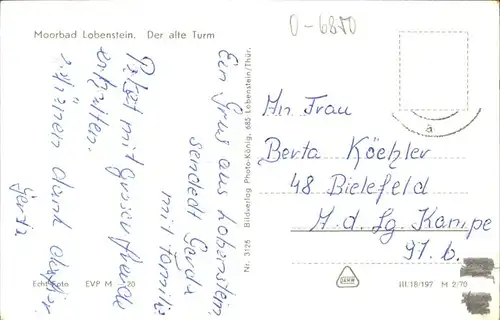 Moorbad Lobenstein. Der alte Turm
0-6850
Ein Grus aus Lobenstein
sendedt Gerda
mit Familie
Paket mit grosser Freude
erhalten.
dank
Gerda
Bildverlag Photo-König, 685 Lobenstein/Thür.
Nr. 3126
An Frau
Berta Köehler
48 Bielefeld
A. d. Lg. Kampe
97. b.
Echt Foto EVP M 20
III/18/197 M 2/70